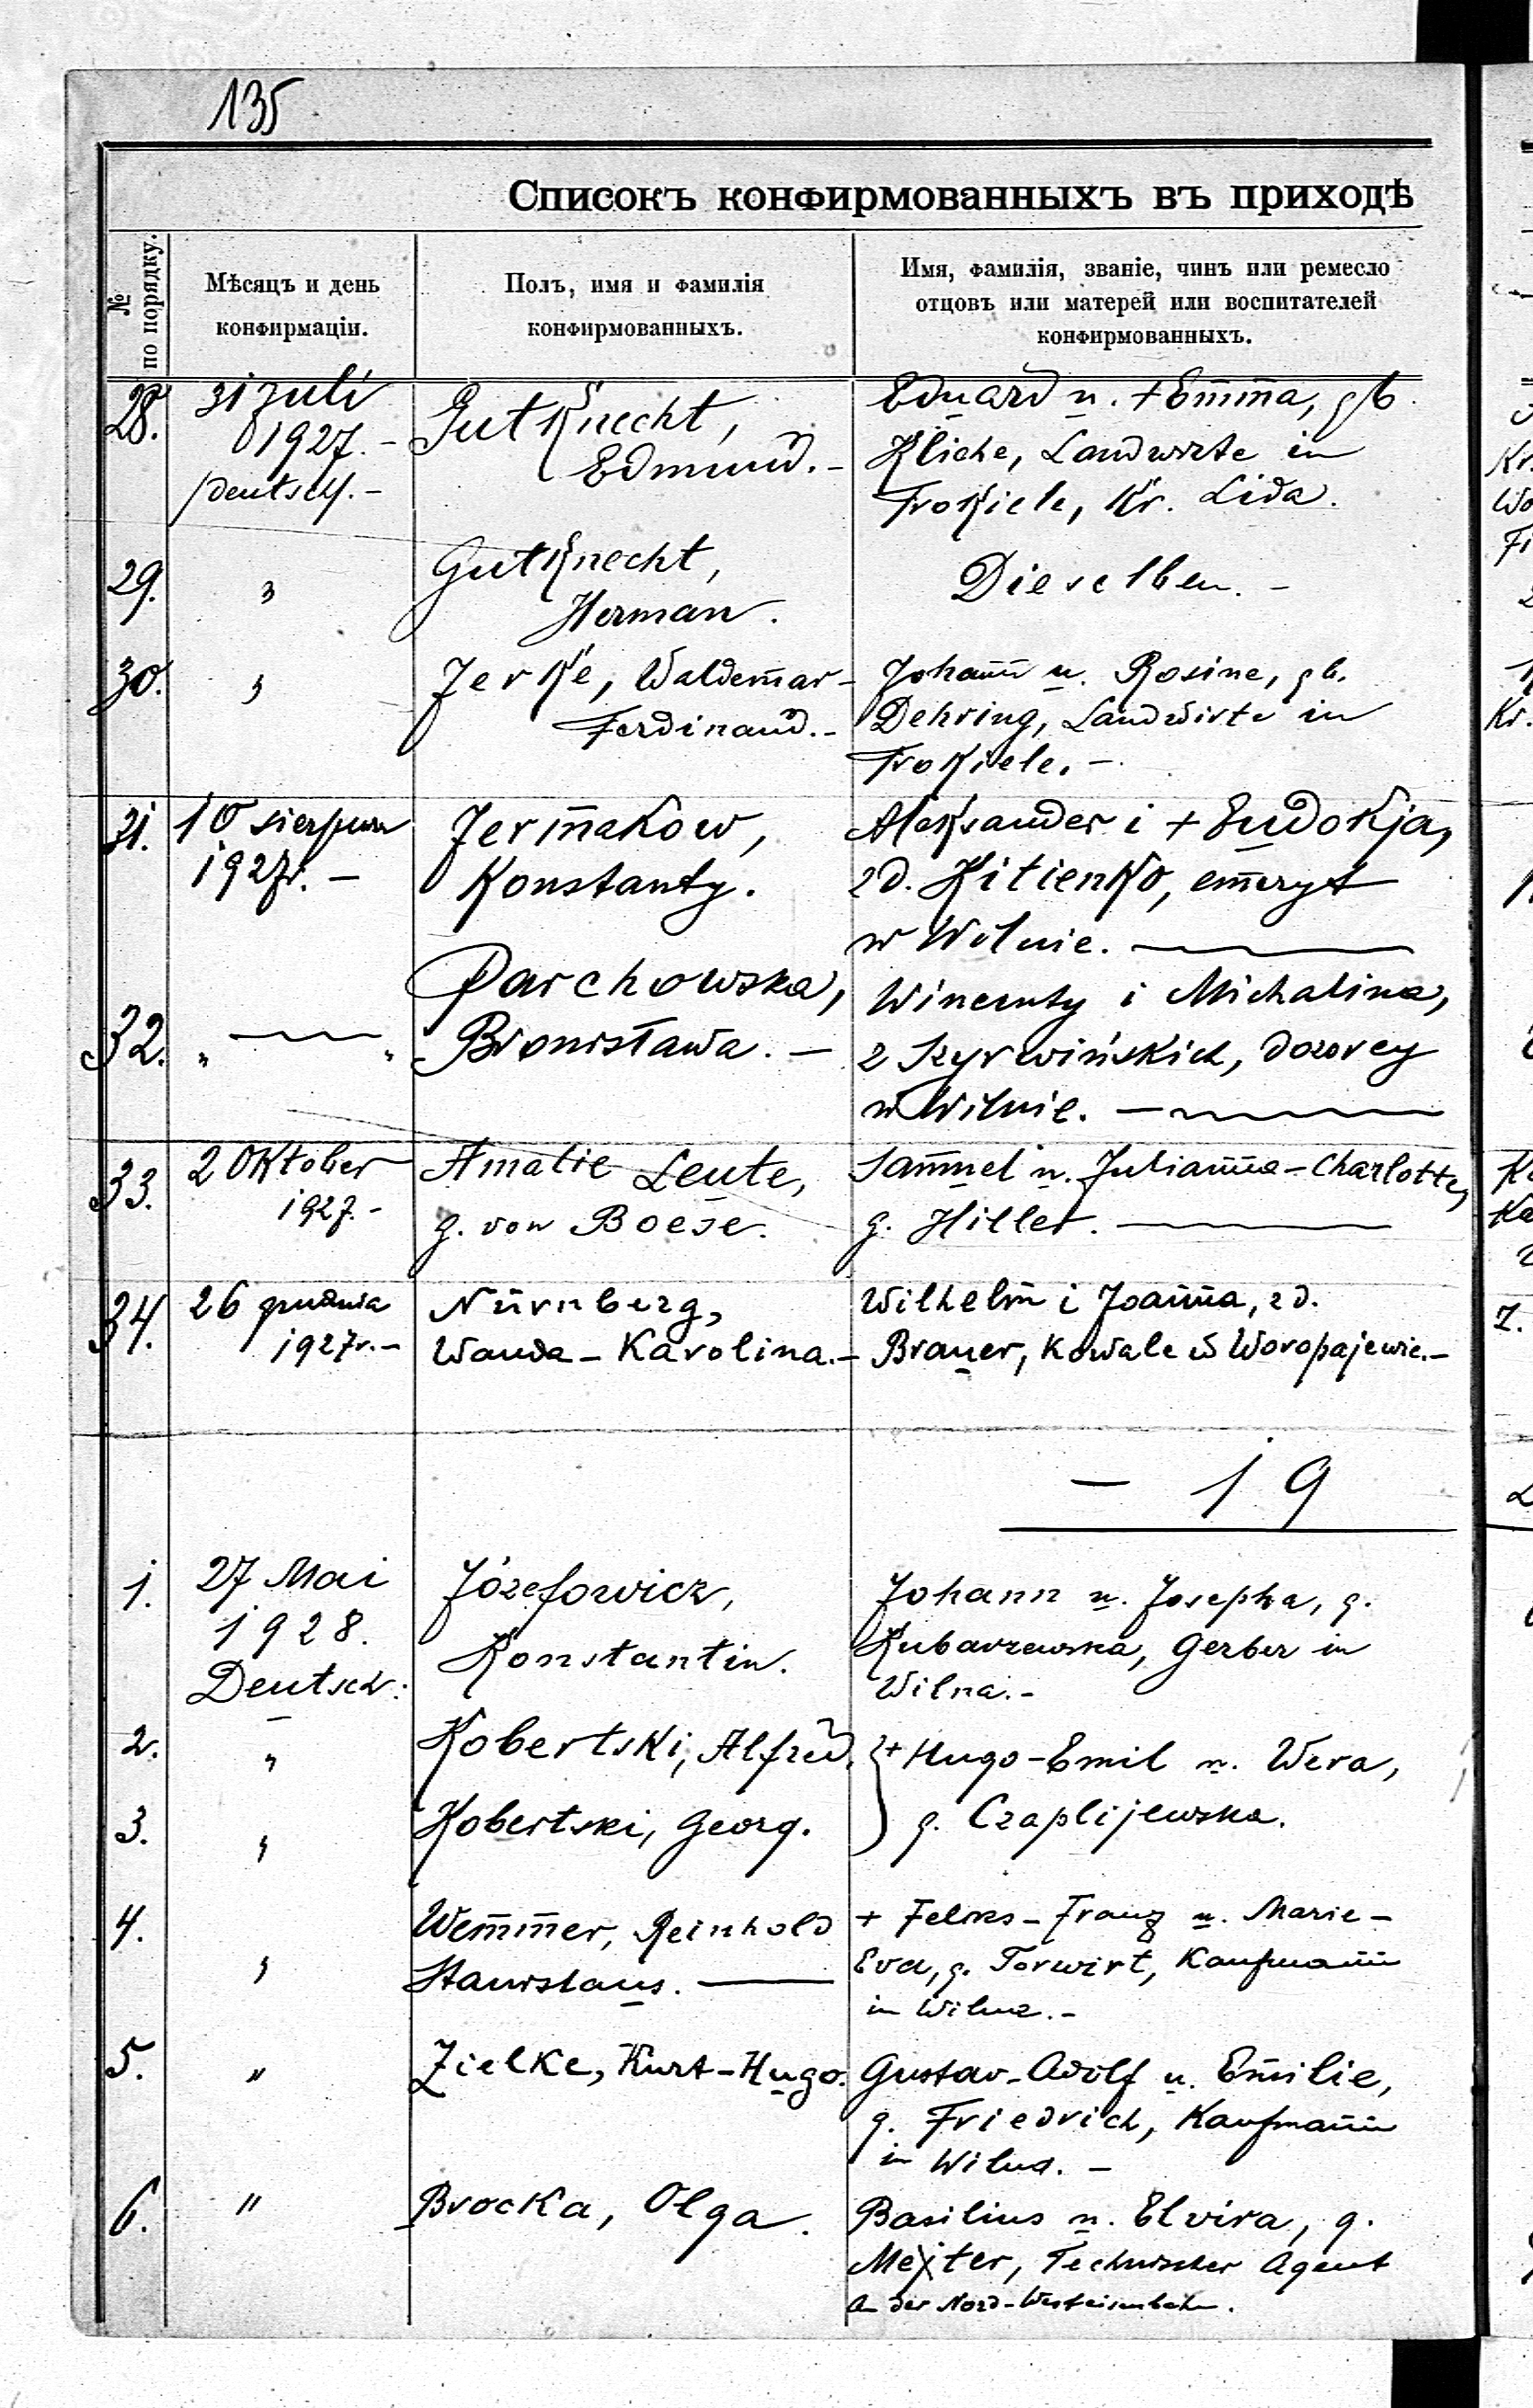 135
Списокъ конфирмованныхъ въ приходѣ
№ по порядку.
Мѣсяцъ и день
конфирмаціи.
Полъ, имя и фамилія
конфирмованныхъ.
Имя, фамилія, званіе, чинъ или ремесло
отцовъ или матерей или воспитателей
конфирмованныхъ.
28.
31 Juli
1927.-
Deutsch.-
Gutknecht,
Edmund.-
Eduard u. +Emma, gb.
Kliche, Landwirte in
Trokiele, Kr. Lida.
29.
"
Gutknecht,
Herman.
Dieselben.-
30.
"
Jerke, Waldemar-
Ferdinand.-
Johann u. Rosine, gb.
Dehring, Landwirte in
Trokiele.-
31.
10 sierpnia
1927r.-
Jermakow,
Konstanty.
Aleksander i +Eudokja,
zd. Kitienko, emeryt
w Wilnie.
32.
" — "
Parchowska,
Bronisława.-
Wincenty i Michalina,
z Szyrwińskich, dozorcy
w Wilnie.
33.
2 Oktober
1927.-
Amalie Leute,
g. von Boese.
Samuel u. Julianna-Charlotte,
g. Hiller.
34.
26 grudnia
1927r.-
Nürnberg,
Wanda-Karolina.-
Wilhelm i Joanna, zd.
Brauer, Kowale w Woropajewie.-
- 19
1.
27 Mai
1928.
Deutsch:
Józefowicz,
Konstantin.
Johann u. Josepha, g.
Kubarzewska, Gerber in
Wilna.-
2.
"
Kobertski, Alfred.
+ Hugo-Emil u. Wera,
g. Czaplijewska.
3.
"
Kobertski, Georg.
4.
"
Wemmer, Reinhold
Stanislaus.
+ Feliks-Franz u. Marie-
Eva, g. Torwirt, Kaufmann
in Wilna.-
5.
"
Zielke, Kurt-Hugo.
Gustav-Adolf u. Emilie,
g. Friedrich, Kaufmann
in Wilna.-
6.
"
Brocka, Olga.
Basilius u. Elvira, g.
Mejter, Technischer Agent
a der Nord-Westeisenbahn.